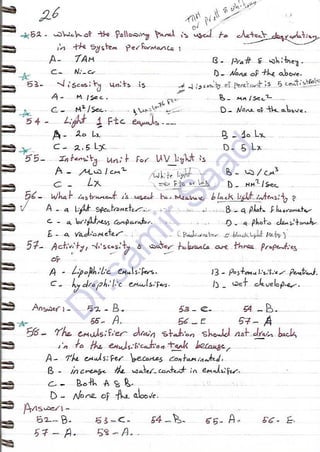 26
TAM or Pratt & Whitney
52. Which of the Following Panel is used to detect degradation
in the system Performance :
A- TAM B- Pratt & whitney.
C- Ni-cr D- None of the above.
53- Viscosity units is Viscosity of penetrant is 5 centistokes
A- M/sec. B- Mn/sec²
C- M²/sec. D- None of the above.
54- Light 1 Ftc equals
A- 20 Lx B- 10 Lx
C- 2.5 Lx D- 5 Lx
55- Intensity unit for UV light is
A- Mw/cm² White light B- w/cm²
C- Lx D- MM²/sec
56- What instrument is used to Measure black light intensity?
A- a light spectrameter B- a Photo Fluorometer
C- a brightness comparator. D- a photo densitometer
E- a radiometer
57- Activity, Viscosity & water tolerance are three Properties
of
A- Lipophilic emulsifers. B- Postemulsifier Penetrant.
C- hydrophilic emulsifiers. D- wet developer.
Answer:- 52-B. 53-C. 54-B.
55-A. 56-E 57-A
58- The emulsifier drain station should not drain back
in to the emulsification Tank because,
A- The emulsifer becomes contaminated.
B- increase the water content in emulsifer.
C- Both A & B.
D- None of the above.
Answer:-
52-B. 53-C. 54-B. 55-A. 56-E.
57-A. 58-A.